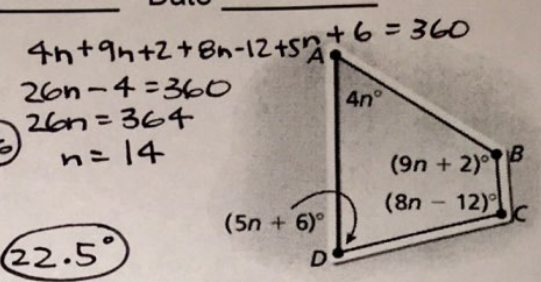 4n+9n+2+8n-12+5n+6 = 360
26n-4=360
26n=364
n=14
22.5°
A
4n°
(9n + 2)° B
(8n - 12)° C
(5n + 6)°
D